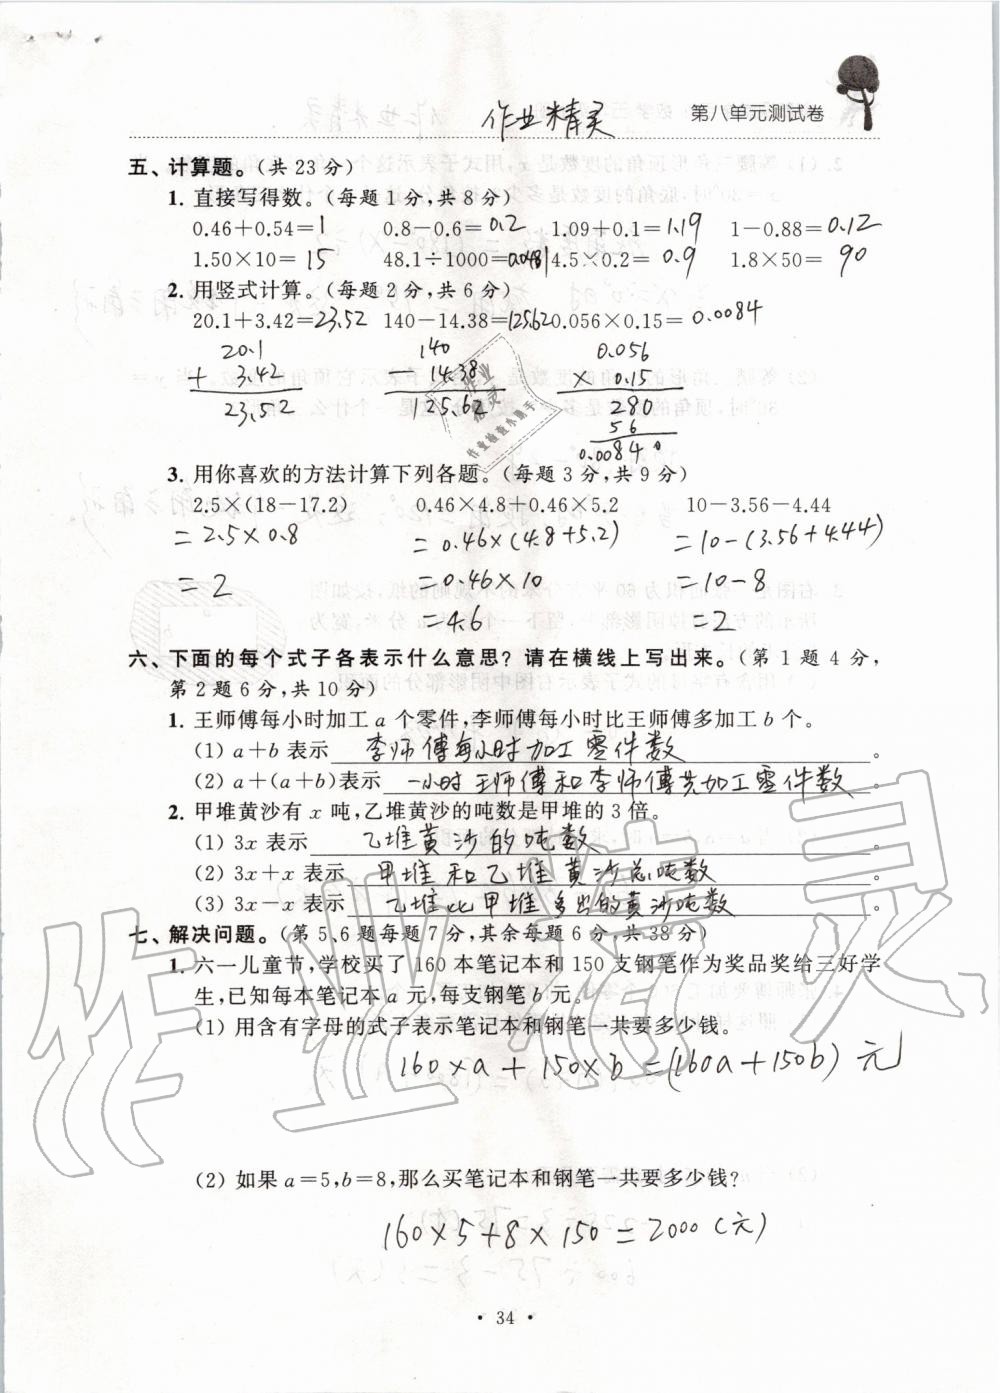 作业精灵 第八单元测试卷
五、计算题。(共 23 分)
1. 直接写得数。(每题 1 分,共 8 分)
0.46+0.54=1 0.8-0.6=0.2 1.09+0.1=1.19 1-0.88=0.12
1.50×10=15 48.1÷1000=0.0481 4.5×0.2=0.9 1.8×50=90
2. 用竖式计算。(每题 2 分,共 6 分)
20.1+3.42=23.52 140-14.38=125.62 0.056×0.15=0.0084
20.1 140 0.056
+ 3.42 - 14.38 × 0.15
23.52 125.62 280
56
0.0084 0
3. 用你喜欢的方法计算下列各题。(每题 3 分,共 9 分)
2.5×(18-17.2) 0.46×4.8+0.46×5.2 10-3.56-4.44
=2.5×0.8 =0.46×(4.8+5.2) =10-(3.56+4.44)
=2 =0.46×10 =10-8
=4.6 =2
六、下面的每个式子各表示什么意思?请在横线上写出来。(第 1 题 4 分,
第 2 题 6 分,共 10 分)
1. 王师傅每小时加工 a 个零件,李师傅每小时比王师傅多加工 b 个。
(1) a+b 表示 李师傅每小时加工零件数 。
(2) a+(a+b)表示 一小时王师傅和李师傅共加工零件数 。
2. 甲堆黄沙有 x 吨,乙堆黄沙的吨数是甲堆的 3 倍。
(1) 3x 表示 乙堆黄沙的吨数 。
(2) 3x+x 表示 甲堆和乙堆黄沙总吨数 。
(3) 3x-x 表示 乙堆比甲堆多出的黄沙吨数 。
七、解决问题。(第 5、6题每题 7 分,其余每题 6 分,共 38 分)
1. 六一儿童节,学校买了 160 本笔记本和 150 支钢笔作为奖品奖给三好学
生,已知每本笔记本 a 元,每支钢笔 b 元。
(1) 用含有字母的式子表示笔记本和钢笔一共要多少钱。
160×a+150×b=(160a+150b)元
(2) 如果 a=5,b=8,那么买笔记本和钢笔一共要多少钱?
160×5+8×150=2000(元)
· 34 ·
作业精灵